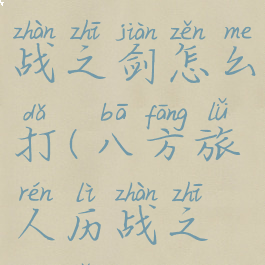 zhàn zhī jiàn zěn me
战之剑怎么
dǎ bā fāng lǚ
打(八方旅
rén lì zhàn zhī
人历战之